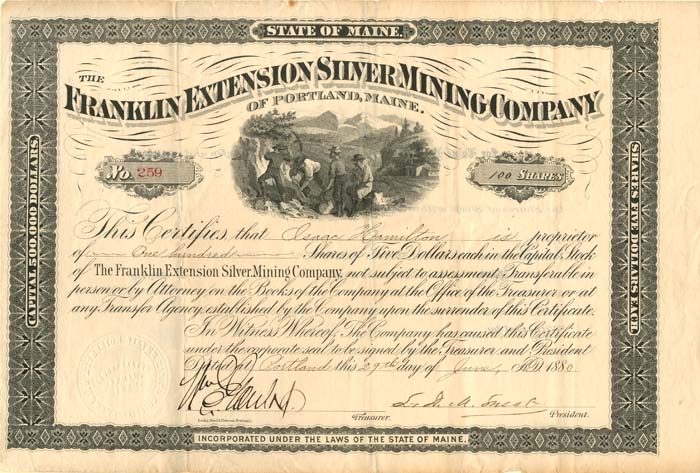 STATE OF MAINE.
THE
FRANKLIN EXTENSION SILVER MINING COMPANY
OF PORTLAND, MAINE.
No. 259
100 SHARES
CAPITAL 500,000 DOLLARS
SHARES FIVE DOLLARS EACH
This Certifies, that Isaac Hamilton is proprietor
of One hundred Shares of Five Dollars each in the Capital Stock
of The Franklin Extension Silver Mining Company, not subject to assessment, Transferable in
person or by Attorney on the Books of the Company at the Office of the Treasurer or at
any Transfer Agency established by the Company upon the surrender of this Certificate.
In Witness Whereof, The Company has caused this Certificate
under the corporate seal to be signed by the Treasurer and President
Dated at Portland this 29th day of June, A.D. 1880.
Treasurer.
President.
INCORPORATED UNDER THE LAWS OF THE STATE OF MAINE.